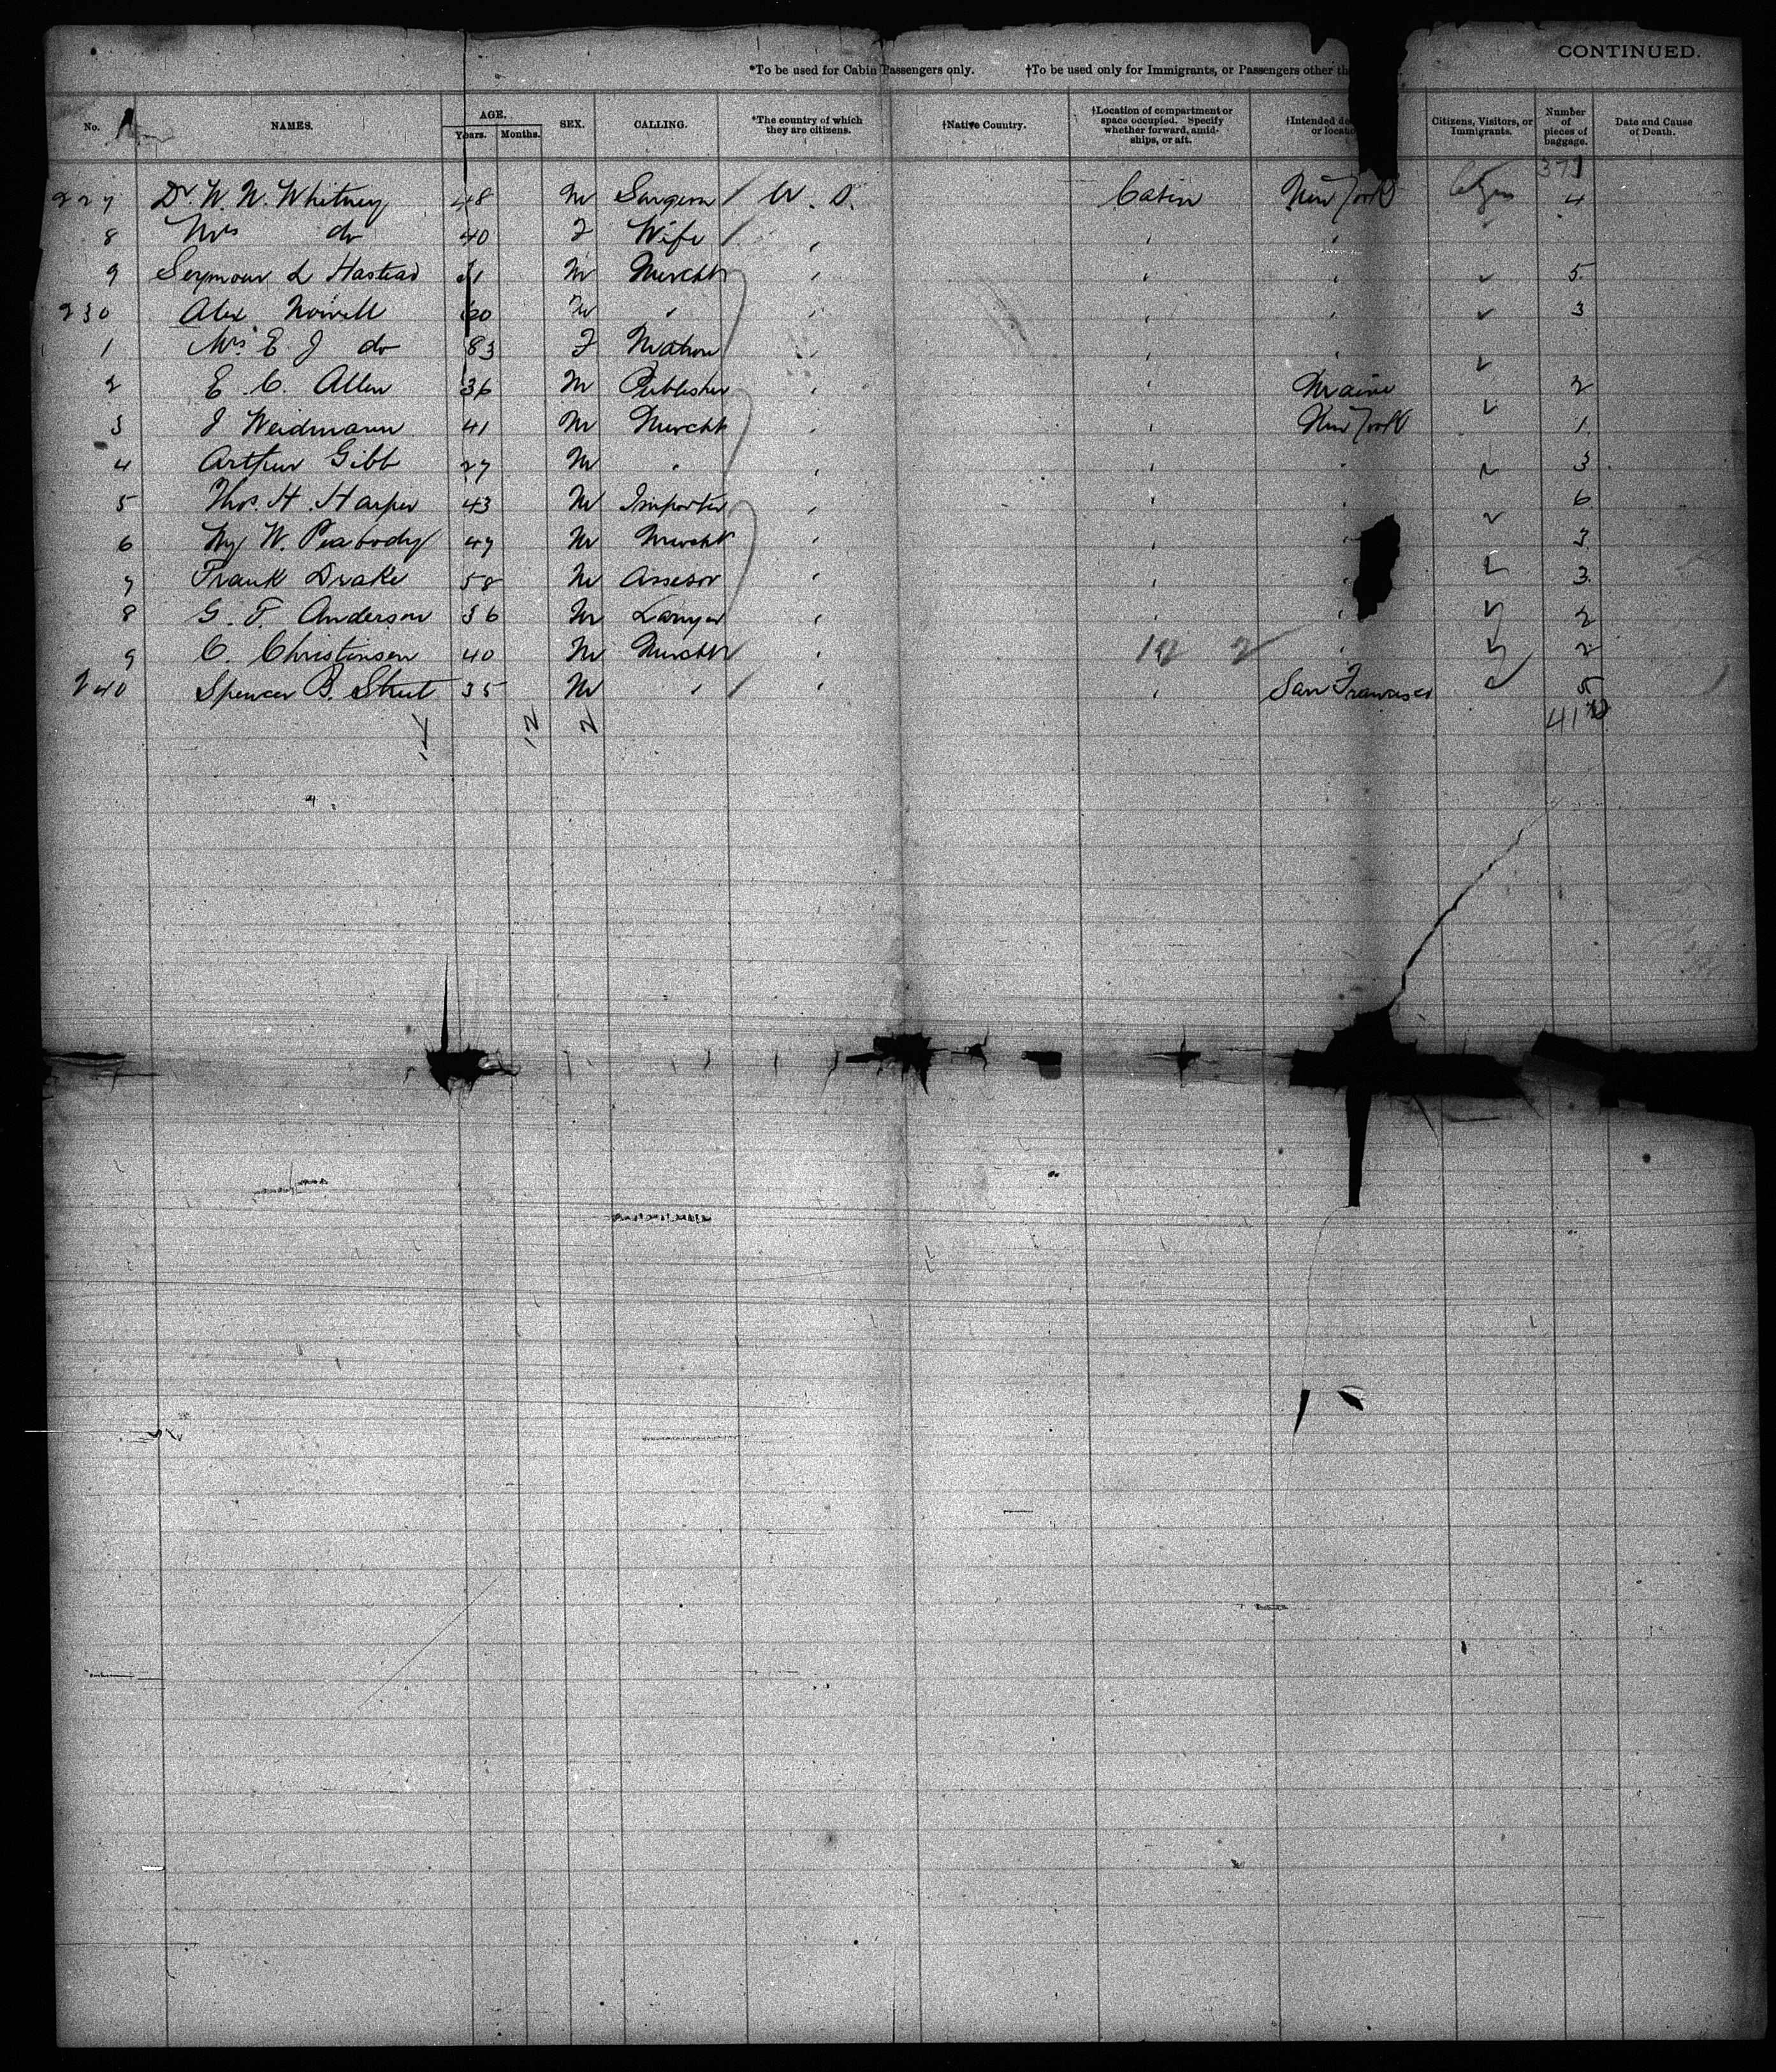 CONTINUED.
*To be used for Cabin Passengers only. †To be used only for Immigrants, or Passengers other th
No. NAMES. AGE. Years. Months. SEX. CALLING. *The country of which they are citizens. †Native Country. †Location of compartment or space occupied. Specify whether forward, amidships, or aft. †Intended de or locatio Citizens, Visitors, or Immigrants. Number of pieces of baggage. Date and Cause of Death.
371
227 Dr. W. N. Whitney 48 M Surgeon U. S. Cabin New York 4
8 Mrs do 40 F Wife
9 Seymour L 31 M Mercht 5
230 Alex Nowell 60 M " 3
1 Mrs E J do 83 F Matron
2 E. C. Allen 36 M Publisher Maine 2
3 J Weidmann 41 M Mercht New York 1
4 Arthur Gibb 27 M " 3
5 Thos. H. Harper 43 M Importer 6
6 Hy W. Peabody 47 M Mercht 3
7 Frank Drake 58 M Assesor 3
8 G. F. Anderson 36 M Lawyer 2
9 C. Christensen 40 M Mercht 12 2 2
240 Spencer B. Street 35 M " San Francisco 5